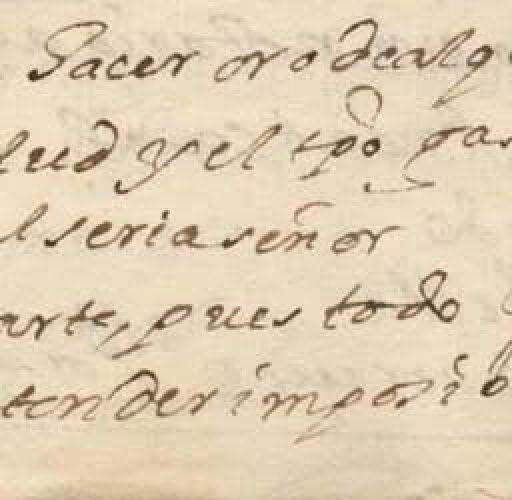 Hacer oro de alq
lud y el tpõ gas
l seria señor
arte, pues todo
tender imposi